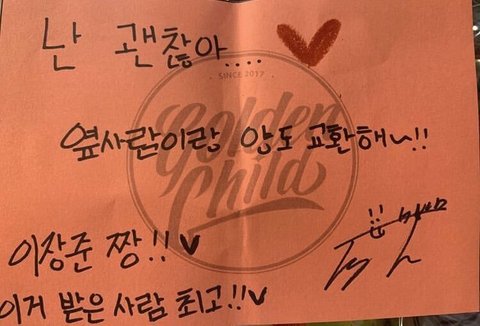 난 괜찮아....
SINCE 2017
Golden
Child
옆사람이랑 앙도 교환해~!!
이장준 짱!!
이거 받은 사람 최고!!